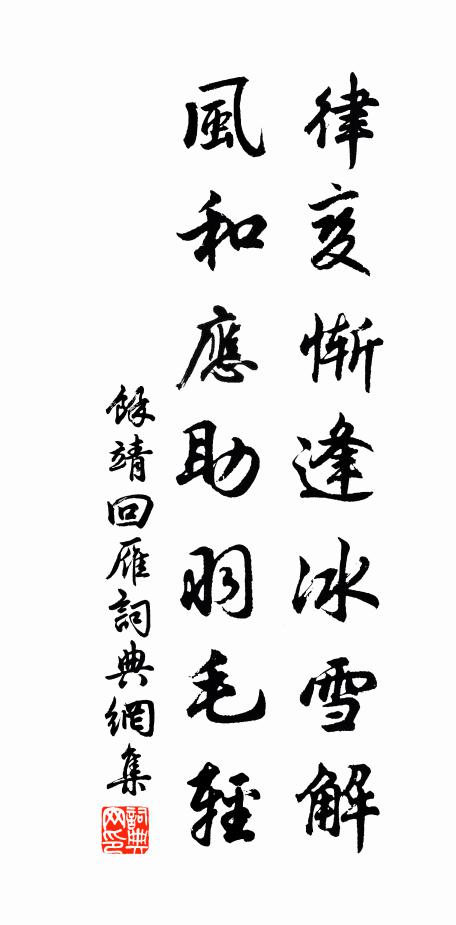 律變漸逢冰雪解
風和應助羽毛輕
餘靖回雁詞典網集
詞典網印